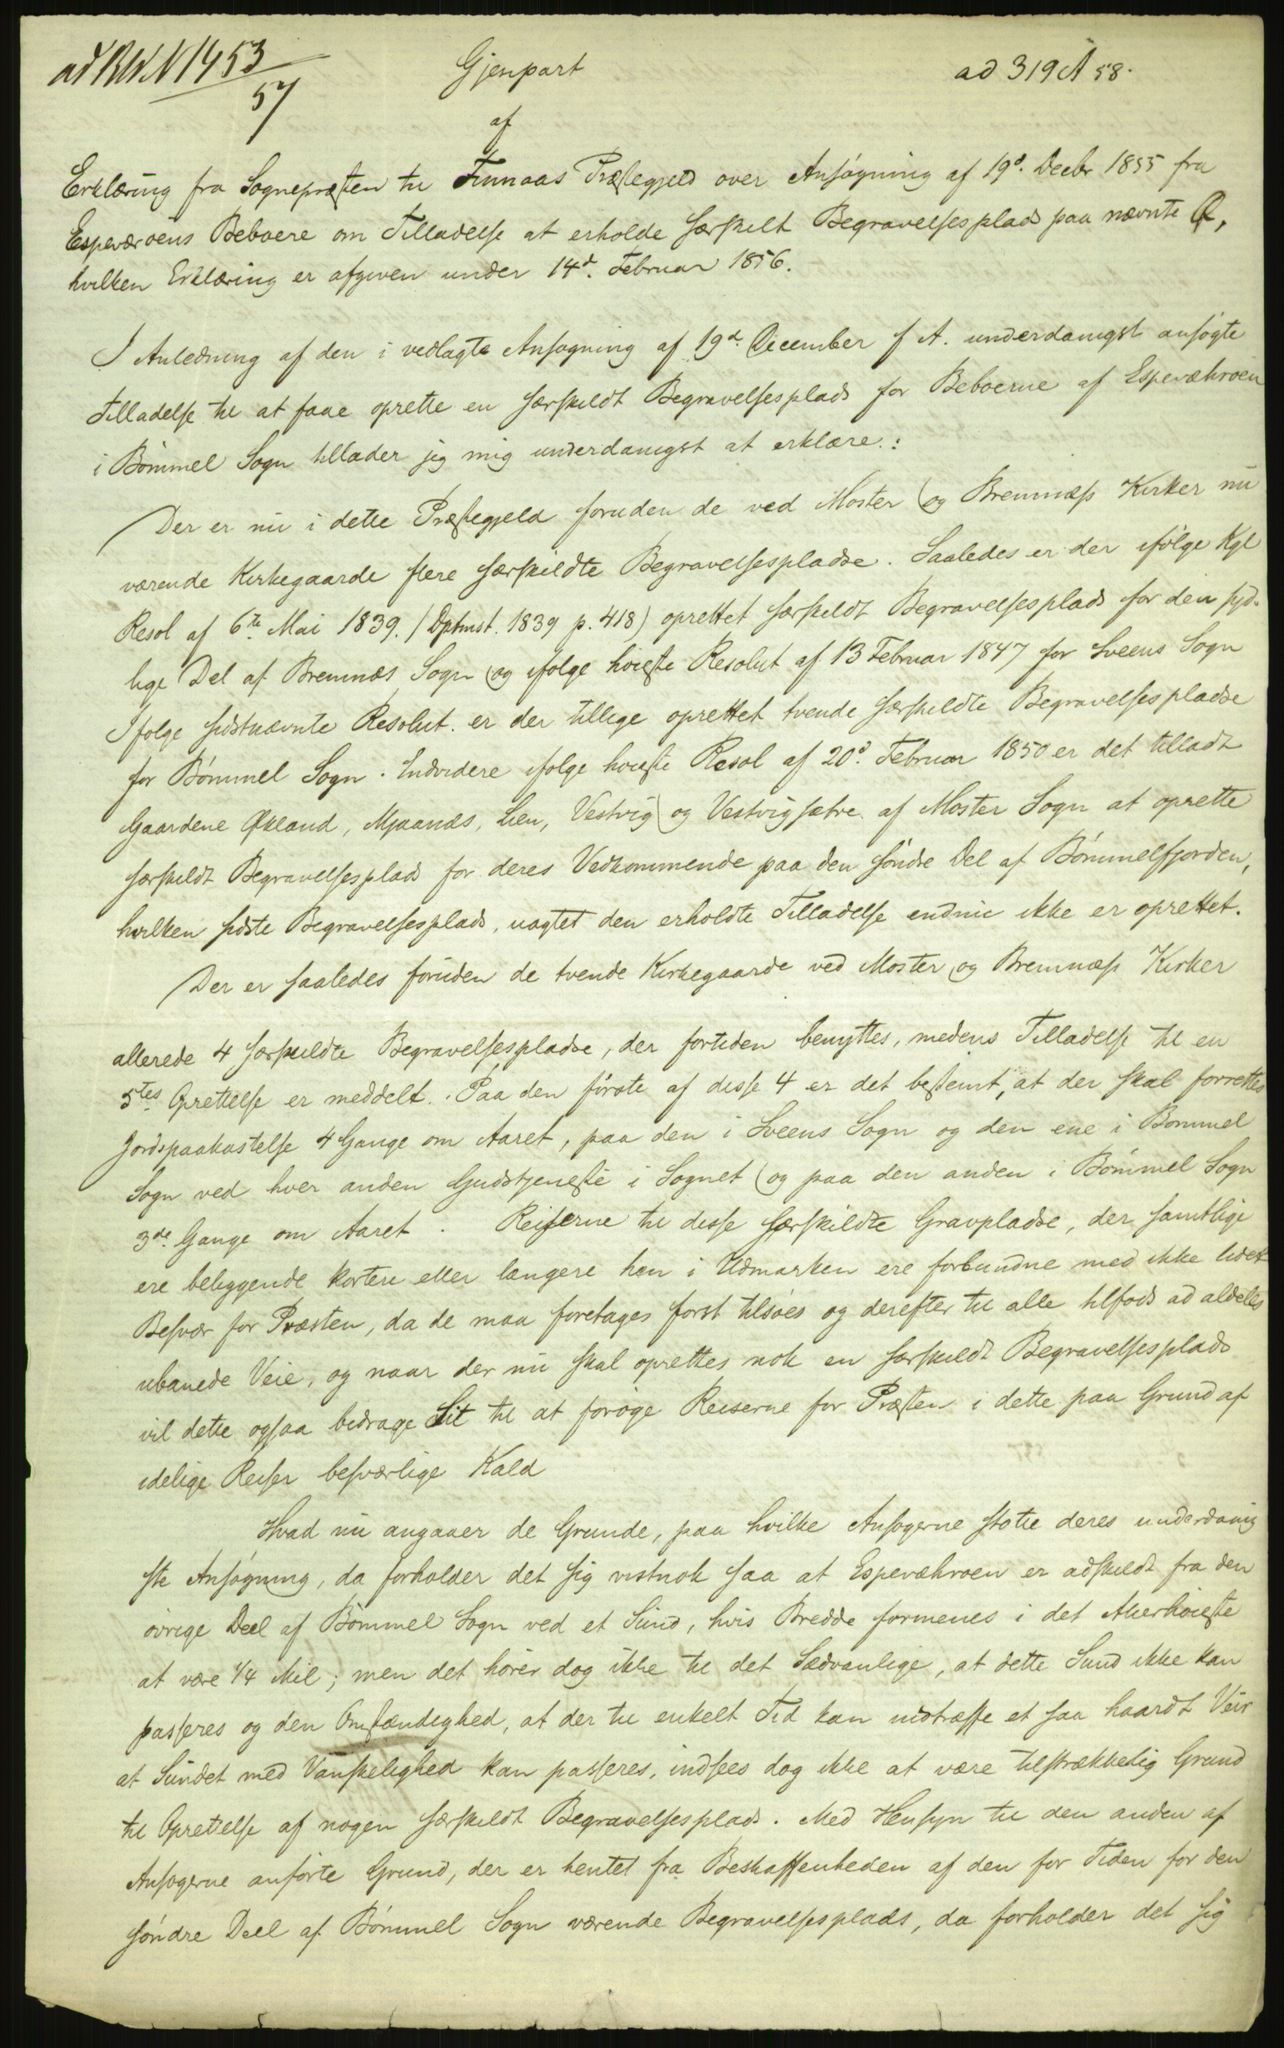 ad BWN 1453/57
Gjenpart
ad 319 A 58.
af
Erklæring fra Sognepræsten til Finnaas Præstegjeld over Ansøgning af 19d. Decbr 1855 fra
Espeværøens Beboere om Tilladelse at erholde særskilt Begravelsesplads paa nævnte Ø,
hvilken Erklæring er afgiven under 14d. Februar 1856.
I Anledning af den i vedlagte Ansøgning af 19d. December f A. underdanigst ansøgte
Tilladelse til at faae oprette en særskildt Begravelsesplads for Beboerne af Espevæhrøen
i Bømmel Sogn tillader jeg mig underdanigst at erklære:
Der er nu i dette Præstegjeld foruden de ved Moster og Bremnæss Kirker nu
værende Kirkegaarde flere særskildte Begravelsespladse. Saaledes er der ifølge Kgl
Resol af 6te Mai 1839. (Dptmst. 1839 p. 418) oprettet særskildt Begravelsesplads for den syd-
lige Del af Bremnæs Sogn og ifølge høieste Resolut af 13 Februar 1847 for Sveens Sogn
Ifølge sidstnævnte Resolut. er der tillige oprettet tvende særskildte Begravelsespladse
for Bømmel Sogn. Endvidere ifølge høieste Resol af 20d. Februar 1850 er det tilladt
Gaardene Økland, Mjaanæs, Lien, Vestvig og Vestvigsætre af Moster Sogn at oprette
særskildt Begravelsesplads for deres Vedkommende paa den søndre Del af Bømmelfjorden,
hvilken sidste Begravelsesplads, uagtet den erholdte Tilladelse endnu ikke er oprettet.
Der er saaledes foruden de tvende Kirkegaarde ved Moster og Bremnæss Kirker
allerede 4 særskildte Begravelsespladse, der fortiden benyttes, medens Tilladelse til en
5tes Oprettelse er meddelt. Paa den første af disse 4 er det bestemt, at der skal forrettes
Jordspaakastelse 4 Gange om Aaret, paa den i Sveens Sogn og den ene i Bømmel
Sogn ved hver anden Gudstjeneste i Sognet og paa den anden i Bømmel Sogn
3de Gange om Aaret. Reiserne til disse særskildte Gravpladse, der samtlige
ere beliggende kortere eller længere hen i Udmarken ere forbundne med ikke lidet
Besvær for Præsten, da de maa foretages først tilsøes og derefter til alle tilfods ad aldeles
ubanede Veie, og naar der nu skal oprettes nok en særskildt Begravelsesplads
vil dette ogsaa bidrage Sit til at forøge Reiserne for Præsten i dette paa Grund af
idelige Reiser besværlige Kald
Hvad nu angaaer de Grunde, paa hvilke Ansøgerne støtte deres underdanig
ste Ansøgning, da forholder det sig vistnok saa at Espevæhrøen er adskildt fra den
øvrige Deel af Bømmel Sogn ved et Sund, hvis Bredde formenes i det Allerhøieste
at være 1/4 Mil; men det hører dog ikke til det Sædvanlige, at dette Sund ikke kan
passeres og den Omstændighed, at der til enkelt Tid kan indtræffe et saa haardt Veir
at Sundet med Vanskelighed kan passeres, indsees dog ikke at være tilstrækkelig Grund
til Oprettelse af nogen særskildt Begravelsesplads. Med Hensyn til den anden af
Ansøgerne anførte Grund, der er hentet fra Beskaffenheden af den for Tiden for den
søndre Deel af Bømmel Sogn værende Begravelsesplads, da forholder det sig